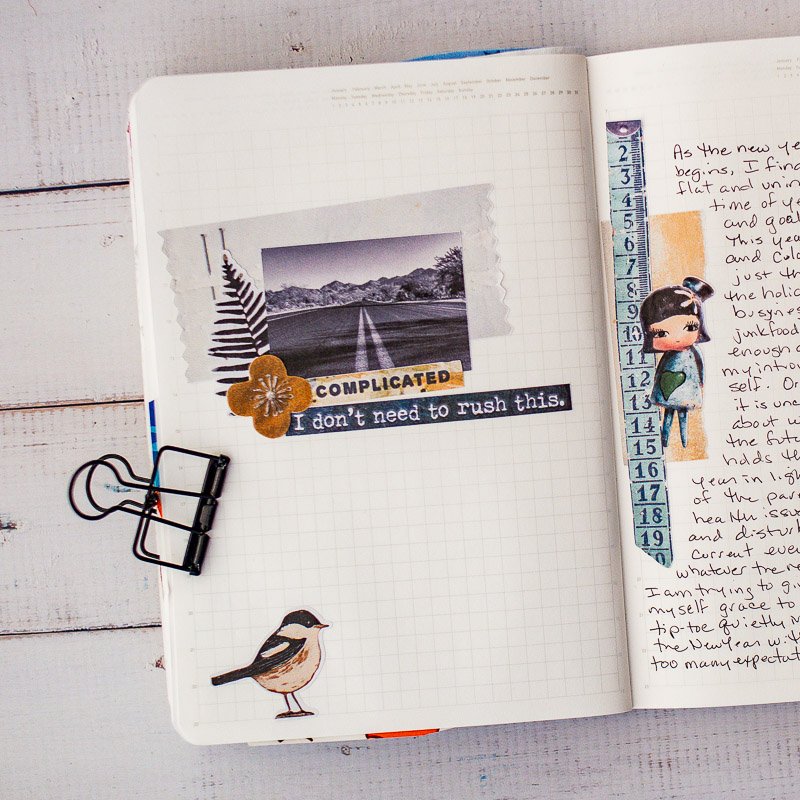 January February March April May June July August September October November December
Monday Tuesday Wednesday Thursday Friday Saturday Sunday
COMPLICATED
I don't need to rush this.
2
3
4
5
6
7
8
9
10
11
12
13
14
15
16
17
18
19
As the new ye
begins, I fin
flat and unin
time of ye
and goal
This year
and Col
just th
the holi
busynes
junkfood
enough
my intro
self. Or
it is unc
about w
the futu
holds th
year in lig
of the par
health issu
and disturb
current eve
whatever the re
I am trying to gi
myself grace to
tip-toe quietly
the New Year wit
too many expectat